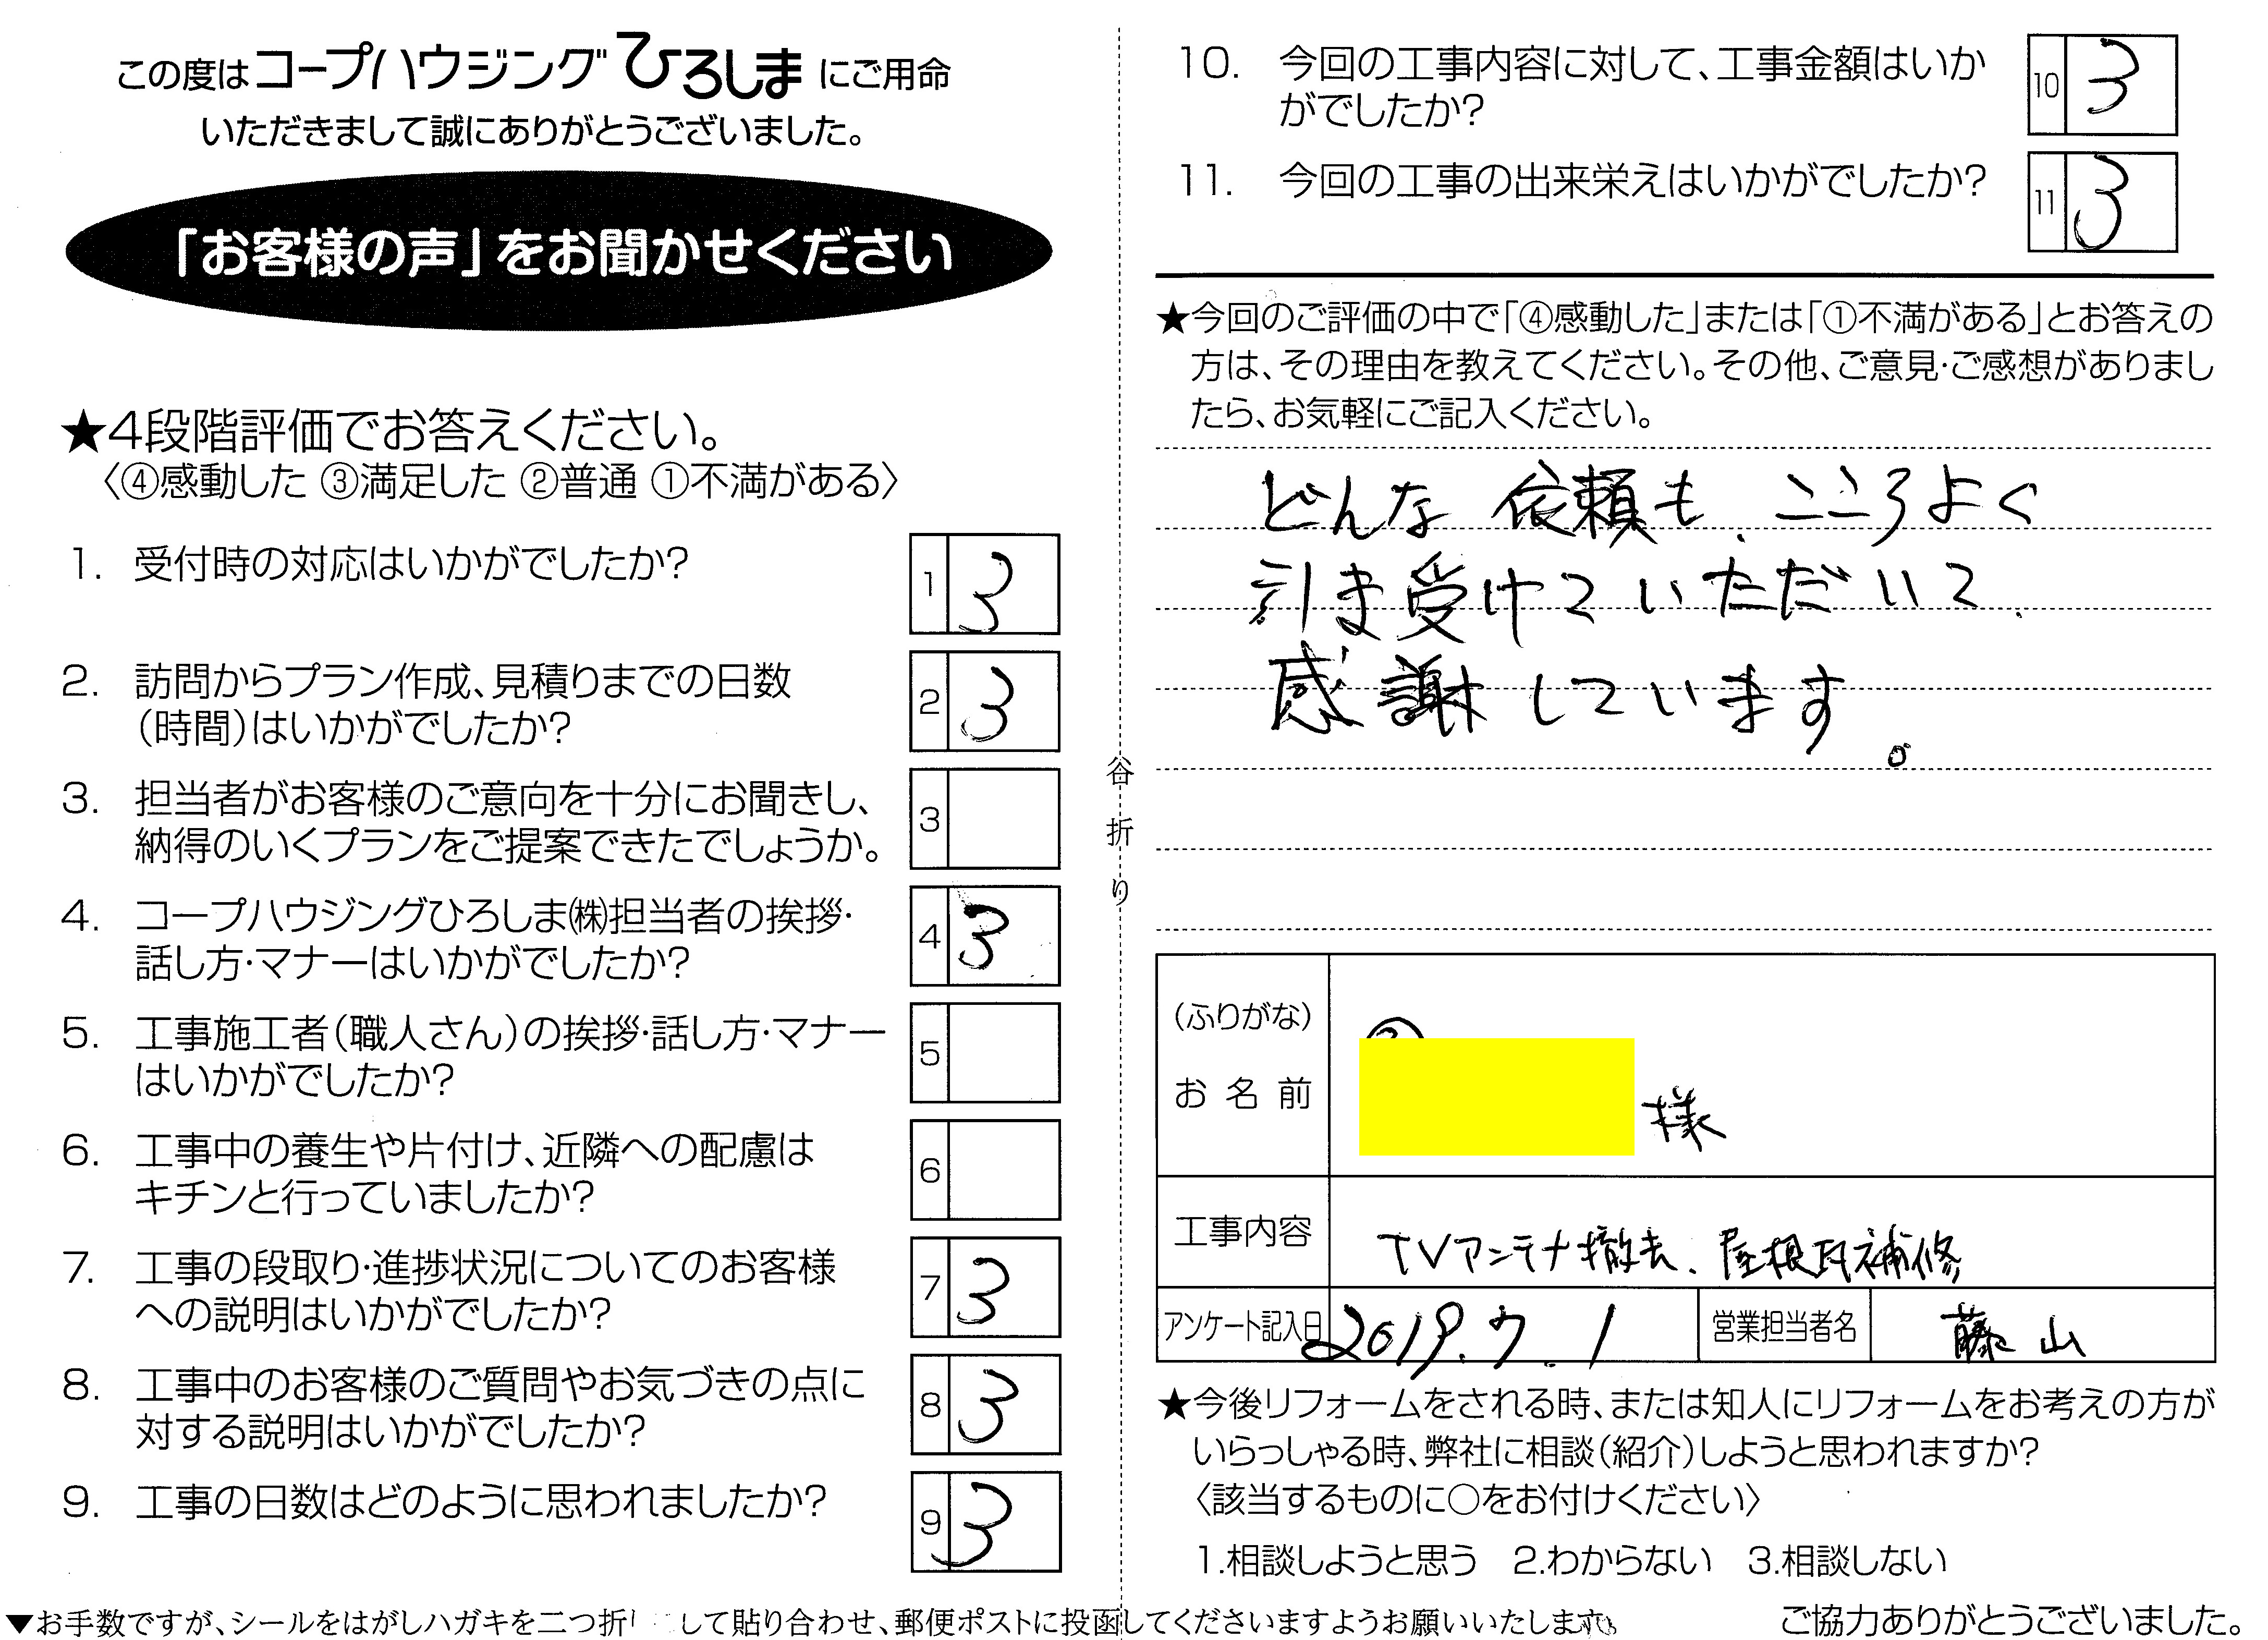 この度はコープハウジングひろしまにご用命
いただきまして誠にありがとうございました。
「お客様の声」をお聞かせください
★4段階評価でお答えください。
〈④感動した ③満足した ②普通 ①不満がある〉
1. 受付時の対応はいかがでしたか?
1 3
2. 訪問からプラン作成、見積りまでの日数
(時間)はいかがでしたか?
2 3
3. 担当者がお客様のご意向を十分にお聞きし、
納得のいくプランをご提案できたでしょうか。
3
4. コープハウジングひろしま㈱担当者の挨拶・
話し方・マナーはいかがでしたか?
4 3
5. 工事施工者(職人さん)の挨拶・話し方・マナー
はいかがでしたか?
5
6. 工事中の養生や片付け、近隣への配慮は
キチンと行っていましたか?
6
7. 工事の段取り・進捗状況についてのお客様
への説明はいかがでしたか?
7 3
8. 工事中のお客様のご質問やお気づきの点に
対する説明はいかがでしたか?
8 3
9. 工事の日数はどのように思われましたか?
9 3
谷折り
10. 今回の工事内容に対して、工事金額はいか
がでしたか?
10 3
11. 今回の工事の出来栄えはいかがでしたか?
11 3
★今回のご評価の中で「④感動した」または「①不満がある」とお答えの
方は、その理由を教えてください。その他、ご意見・ご感想がありまし
たら、お気軽にご記入ください。
どんな依頼も、こころよく
引き受けていただいて、
感謝しています。
(ふりがな)
お名前 様
工事内容 TVアンテナ撤去、屋根瓦補修
アンケート記入日 2019.7.1 営業担当者名 藤山
★今後リフォームをされる時、または知人にリフォームをお考えの方が
いらっしゃる時、弊社に相談(紹介)しようと思われますか?
〈該当するものに○をお付けください〉
1.相談しようと思う 2.わからない 3.相談しない
▼お手数ですが、シールをはがしハガキを二つ折して貼り合わせ、郵便ポストに投函してくださいますようお願いいたします。
ご協力ありがとうございました。